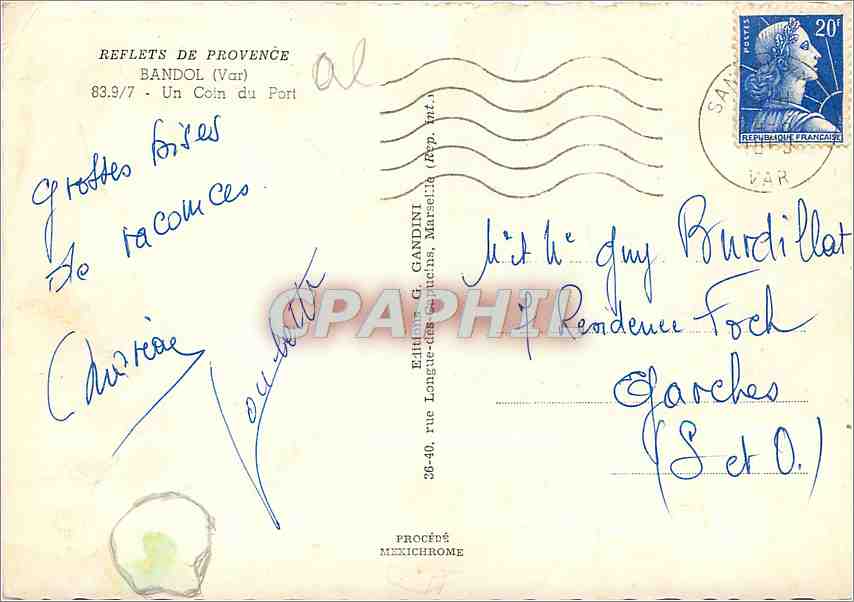 REFLETS DE PROVENCE
BANDOL (Var)
83.9/7 - Un Coin du Port
Grosses bises
de vacances
Christiane
Editions G. GANDINI
36-40, rue Longue-des-Capucins, Marseille (Rep. Int.)
PROCÉDÉ
MEXICHROME
CPAPHIL
POSTES
20F
REPUBLIQUE FRANÇAISE
SAN
VAR
Mr et Me Guy Burdillat
7 Residence Foch
Garches
(S et O.)